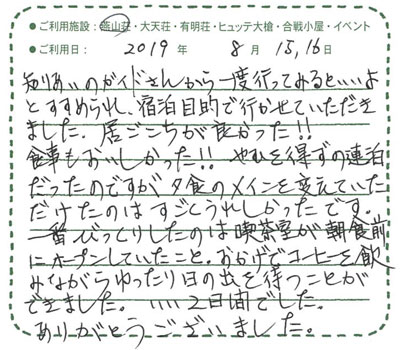 ●ご利用施設：燕山荘・大天荘・有明荘・ヒュッテ大槍・合戦小屋・イベント
●ご利用日： 2019年 8月 15,16日
知りあいのガイドさんから一度行ってみるといいよ
とすすめられ、宿泊目的で行かせていただき
ました。居ごこちが良かった!!
食事もおいしかった!! やむを得ずの連泊
だったのですが夕食のメインを変えていた
だけたのはすごくうれしかったです。
一番びっくりしたのは喫茶室が朝食前
にオープンしていたこと。おかげでコーヒーを飲
みながらゆったり日の出を待つことが
できました。いい2日間でした。
ありがとうございました。